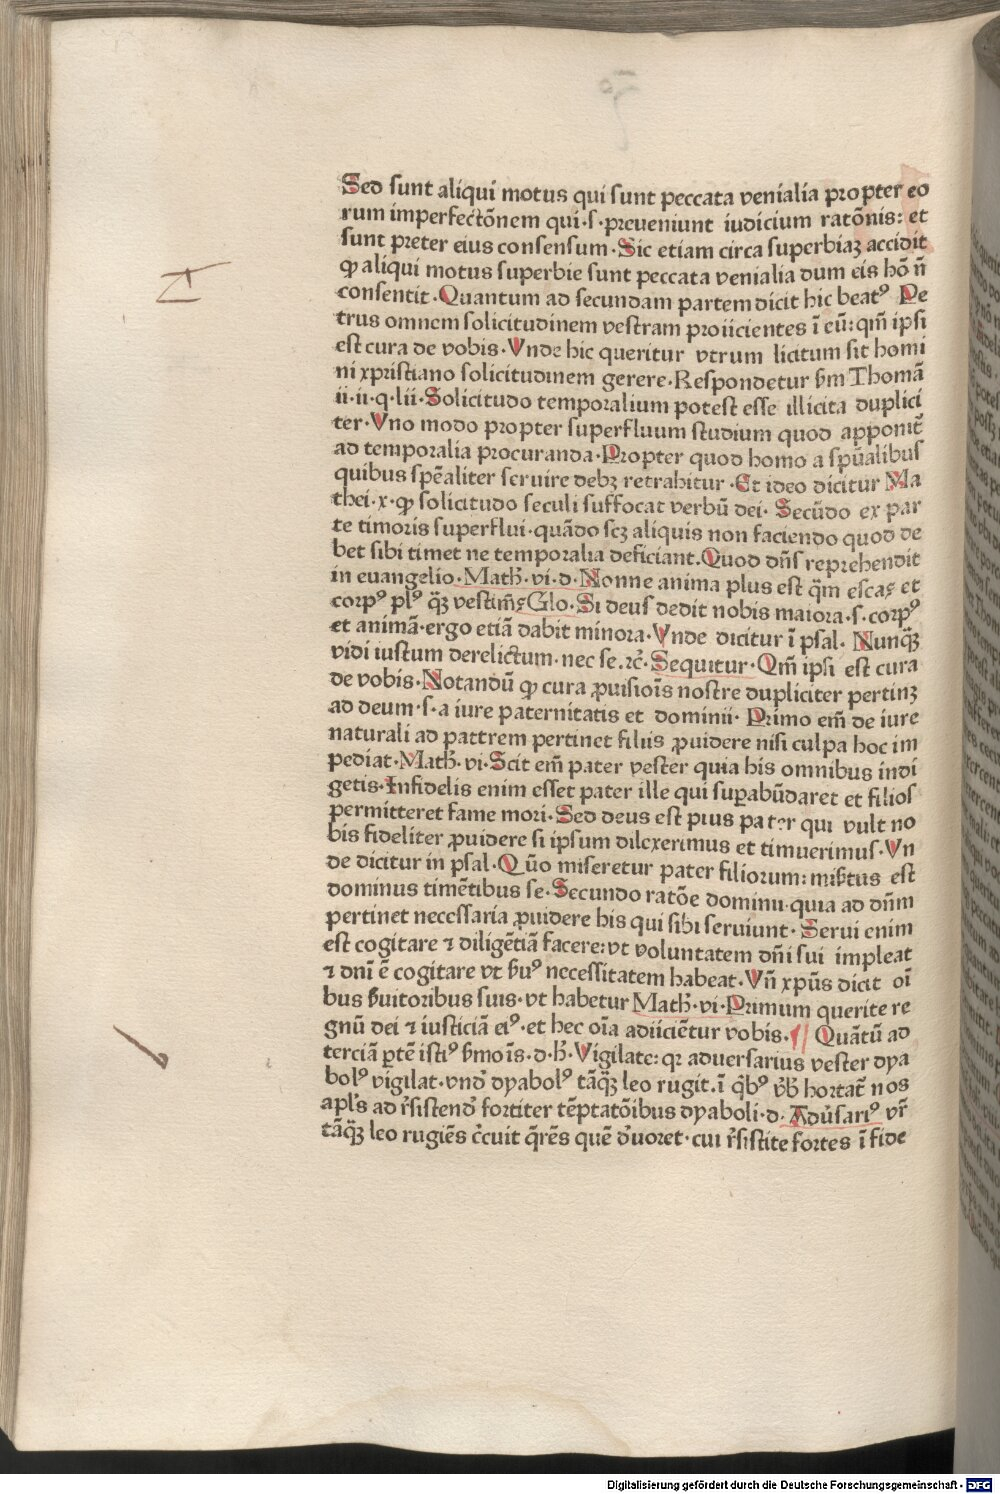 Sed sunt aliqui motus qui sunt peccata venialia propter eo
rum imperfectõnem qui·s·preveniunt iudicium ratõnis: et
sunt preter eius consensum·Sic etiam circa superbiaꝫ accidit
ꝙ aliqui motus superbie sunt peccata venialia dum eis hõ ñ
consentit·Quantum ad secundam partem dicit hic beatꝰ Pe
trus omnem solicitudinem vestram proiicientes ĩ eũ: qm̃ ipsi
est cura de vobis·Vnde hic queritur vtrum licitum sit homi
ni xpristiano solicitudinem gerere·Respondetur ẜm Thomã
ii·ii·q·lii·Solicitudo temporalium potest esse illicita duplici
ter·Vno modo propter superfluum studium quod apponit̃
ad temporalia procuranda·Propter quod homo a spũalibus
quibus spẽaliter seruire debꝫ retrahitur·Et ideo dicitur Ma
thei·x·ꝙ solicitudo seculi suffocat verbũ dei· Secũdo ex par
te timoris superflui·quãdo scꝫ aliquis non faciendo quod de
bet sibi timet ne temporalia deficiant.Quod dñs reprehendit
in euangelio·Math̃·vi·d·Nonne anima plus est q̃m escas et
corpꝰ plꝰ q̃ꝫ vestim̃s Glo·Si deus dedit nobis maiora·s·corpꝰ
et animã·ergo etiã dabit minora·Vnde dicitur ĩ psal· Nunq̃ꝫ
vidi iustum derelictum·nec se·⁊c̃·Sequitur·Qm̃ ipsi est cura
de vobis·Notandũ ꝙ cura ꝓuisiois̃ nostre dupliciter pertinꝫ
ad deum·s·a iure paternitatis et dominii· Primo em̃ de iure
naturali ad pattrem pertinet filiis ꝓuidere nisi culpa hoc im
pediat·Math̃·vi·Scit em̃ pater vester quia his omnibus indi
getis·Infidelis enim esset pater ille qui suꝑabũdaret et filios
permitteret fame mori·Sed deus est pius pater qui vult no
bis fideliter ꝓuidere si ipsum dilexerimus et timuerimus·Vn
de dicitur in psal·Quõ miseretur pater filiorum: miẜtus est
dominus timẽtibus se·Secundo ratõe dominii·quia ad dñm
pertinet necessaria ꝓuidere his qui sibi seruiunt·Serui enim
est cogitare ⁊ diligẽtiã facere: vt voluntatem dñi sui impleat
⁊ dni ẽ cogitare vt ẜuꝰ necessitatem habeat·Vñ xpũs dicit oĩ
bus ẜuitoribus suis·vt habetur Math̃·vi·Primum querite re
gnũ dei ⁊ iusticiã eiꝰ·et hec oĩa adiiciẽtur vobis· Quãtũ ad
terciã ꝑtẽ istiꝰ ẜmoĩs·d·h̃·Vigilate: qꝛ aduersarius vester dya
bolꝰ vigilat·vnd̃ dyabolꝰ tãq̃ꝫ leo rugit.ĩ q̃bꝰ v̉b̉ hortat̃ nos
apl̃s ad r̃sistend̃ fortiter tẽptatõibus dyaboli·d·Adũsariꝰ vr̃
tãq̃ꝫ leo rugiẽs c̃cuit q̃rẽs quẽ d̃uoret·cui r̃sistite fortes ĩ fide
Digitalisierung gefördert durch die Deutsche Forschungsgemeinschaft - DFG